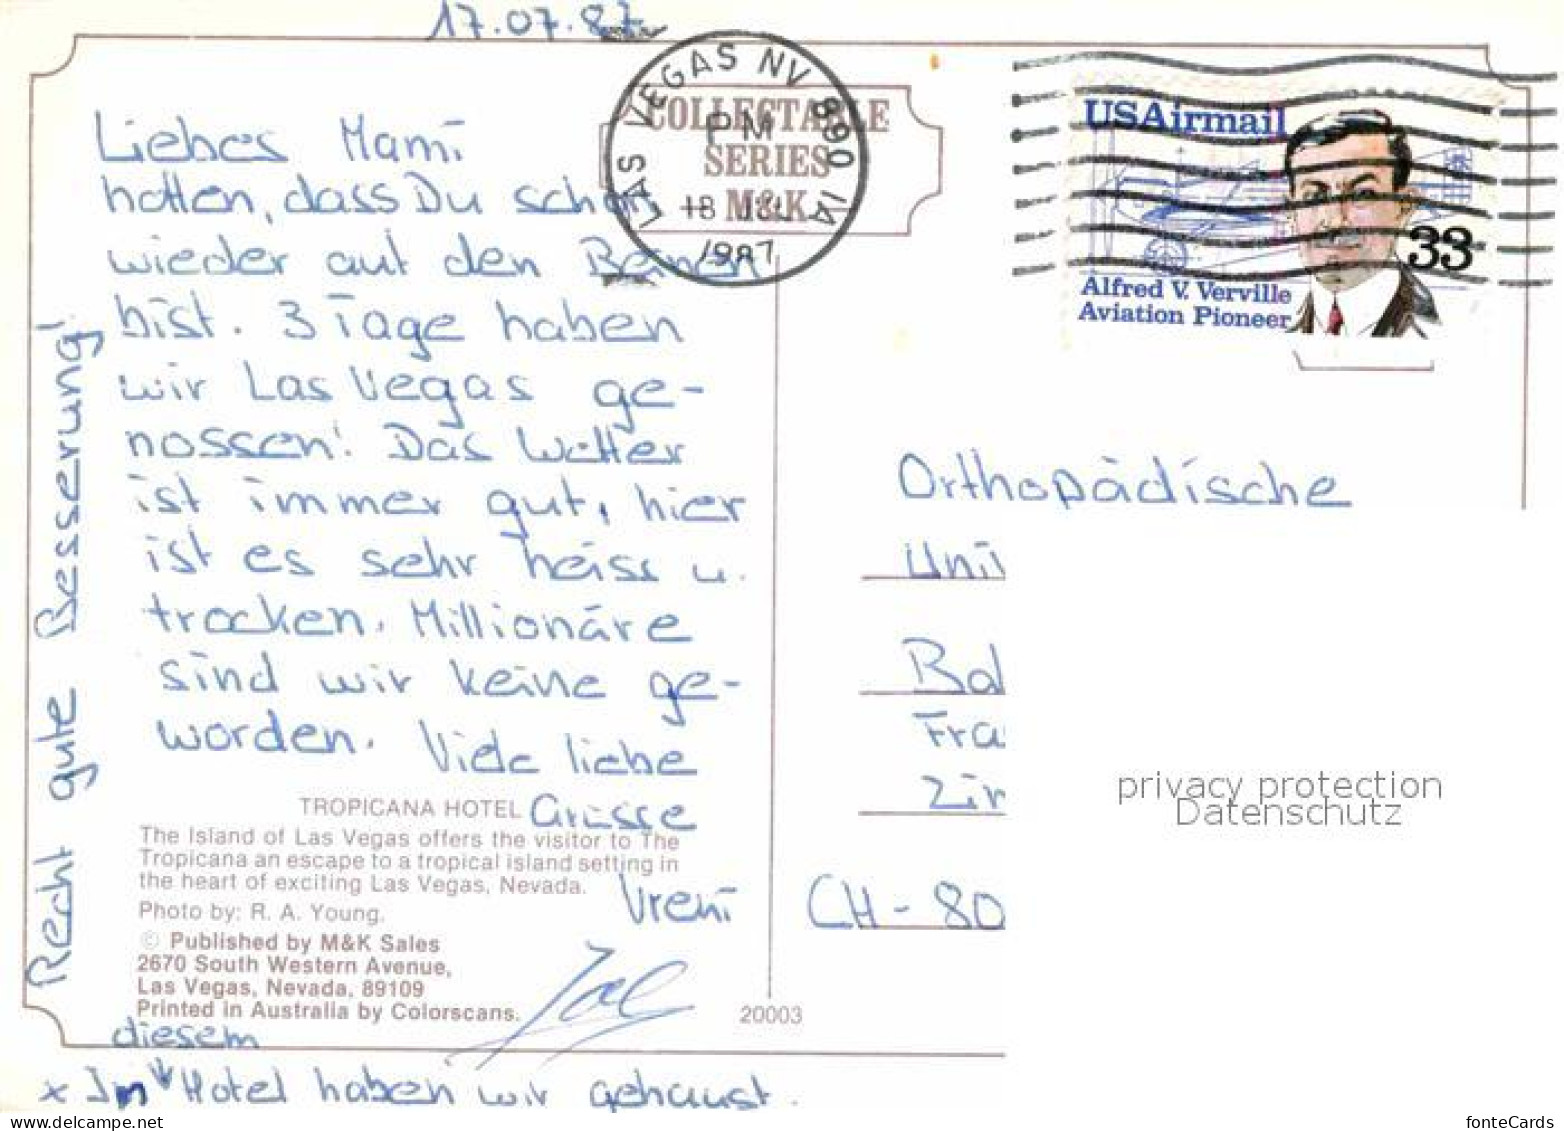 17.07.87
Liebes Mami
hoffen, dass Du schon
wieder auf den Beinen
bist. 3 Tage haben
wir Las Vegas ge-
nossen! Das Wetter
ist immer gut, hier
ist es sehr heiss u.
trocken. Millionäre
sind wir keine ge-
worden. Viele liebe
Grüsse
Vreni
Recht gute Besserung!
diesem
x Im Hotel haben wir gehaust.
TROPICANA HOTEL
The Island of Las Vegas offers the visitor to The
Tropicana an escape to a tropical island setting in
the heart of exciting Las Vegas, Nevada.
Photo by: R. A. Young.
© Published by M&K Sales
2670 South Western Avenue,
Las Vegas, Nevada, 89109
Printed in Australia by Colorscans.
20003
COLLECTABLE
SERIES
M&K
LAS VEGAS NV 890 1A
PM
18 JUL
1987
USAirmail
33
Alfred V. Verville
Aviation Pioneer
Orthopädische
Uni
Bal
Fra
Zin
CH-80
privacy protection
Datenschutz
www.delcampe.net
fonteCards